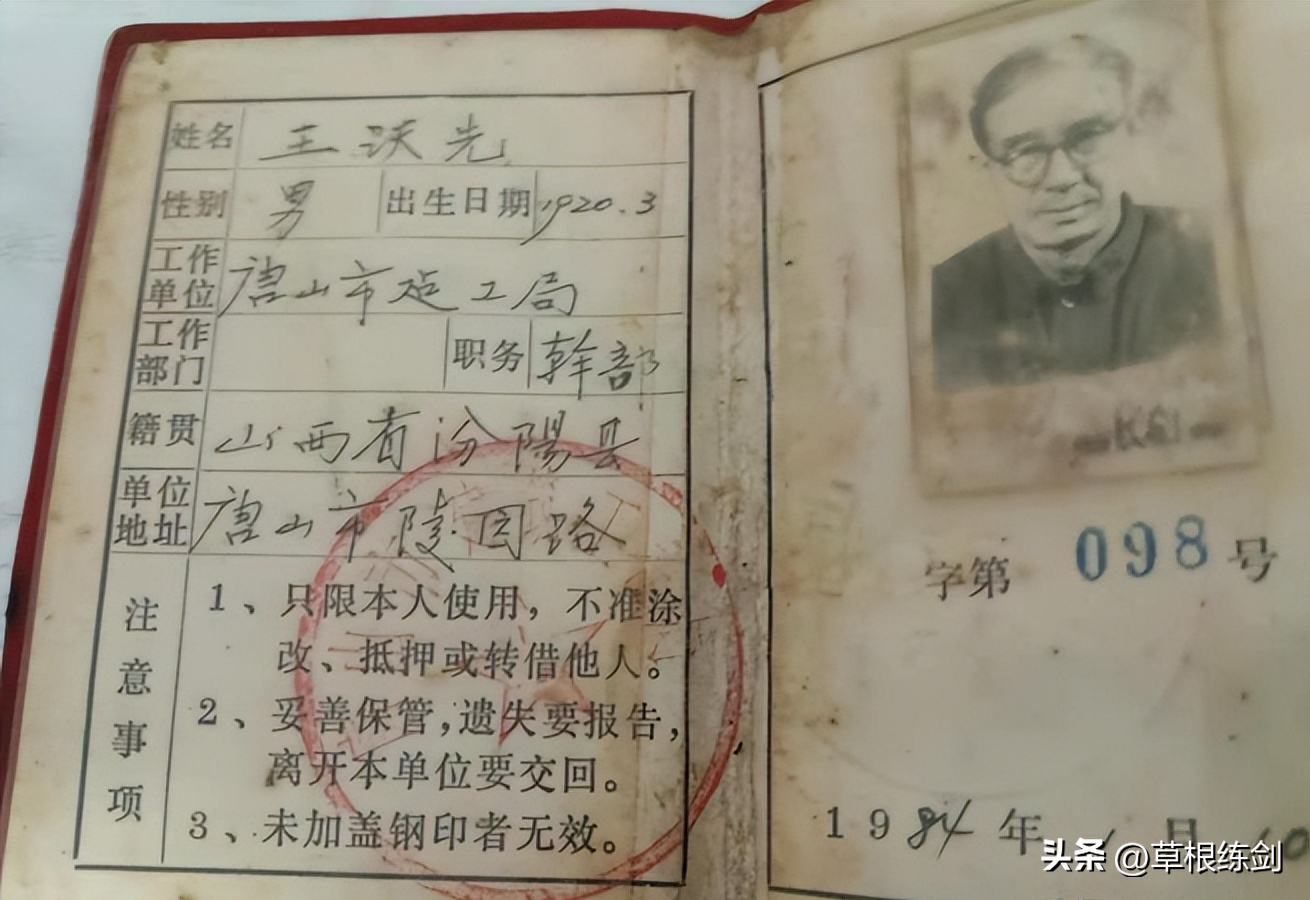 姓名 王沃先
性别 男 出生日期 1920.3
工作单位 唐山市建工局
工作部门 职务 幹部
籍贯 山西省汾陽县
单位地址 唐山市陵园路
注意事项
1、只限本人使用，不准涂
改、抵押或转借他人。
2、妥善保管，遗失要报告，
离开本单位要交回。
3、未加盖钢印者无效。
字第 098 号
1984年 月
头条 @草根练剑